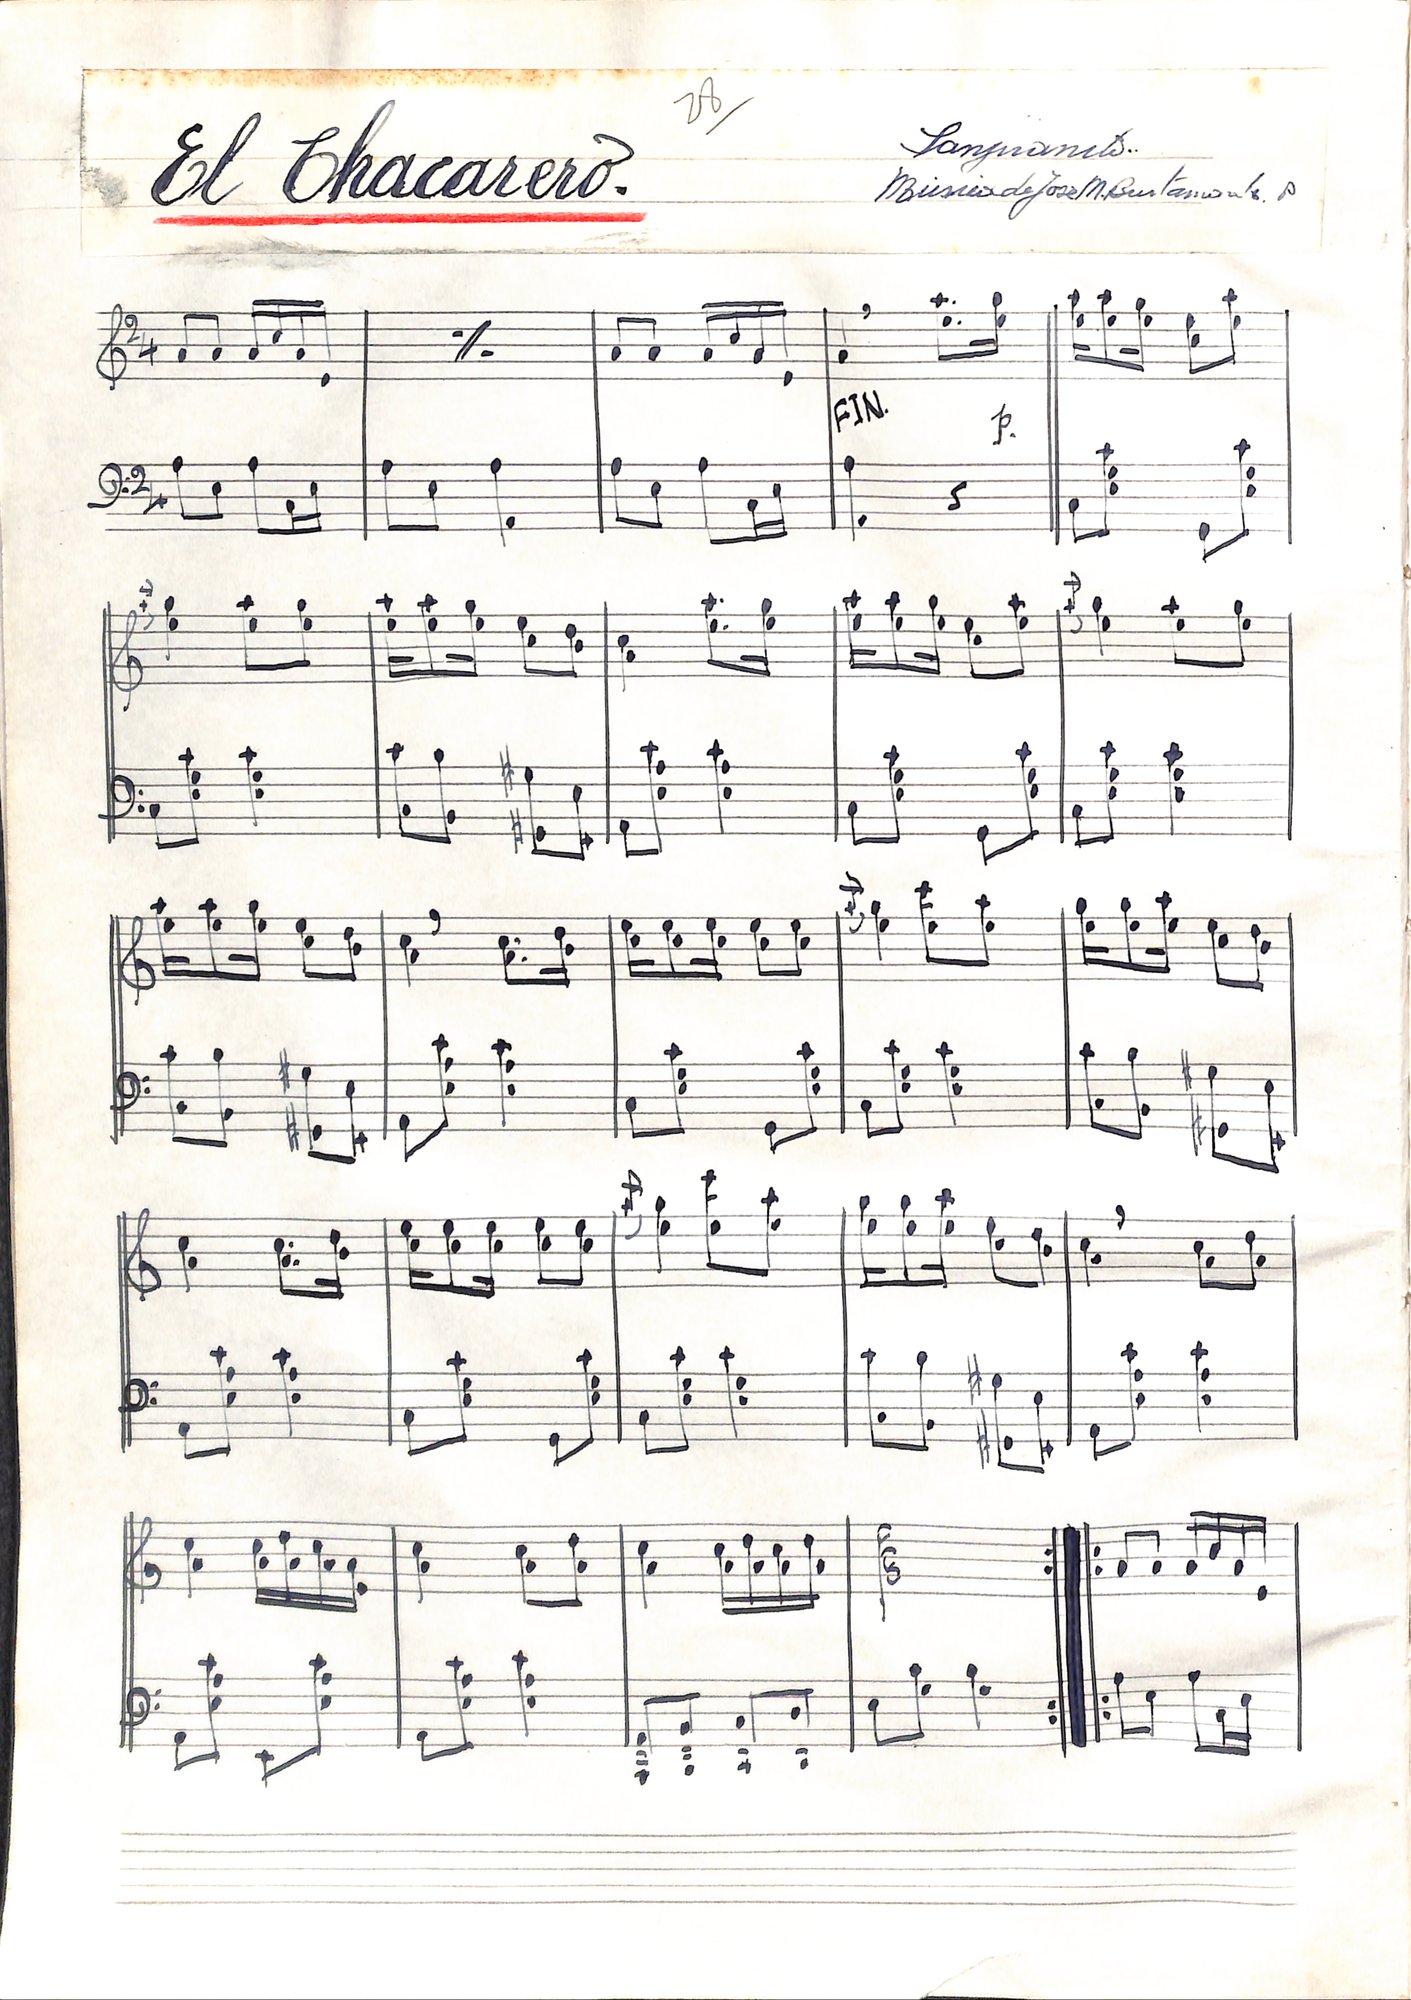 28
El Chacarero.
Sanjuanito..
Música de Jose M. Bustamante. P
FIN.
p.